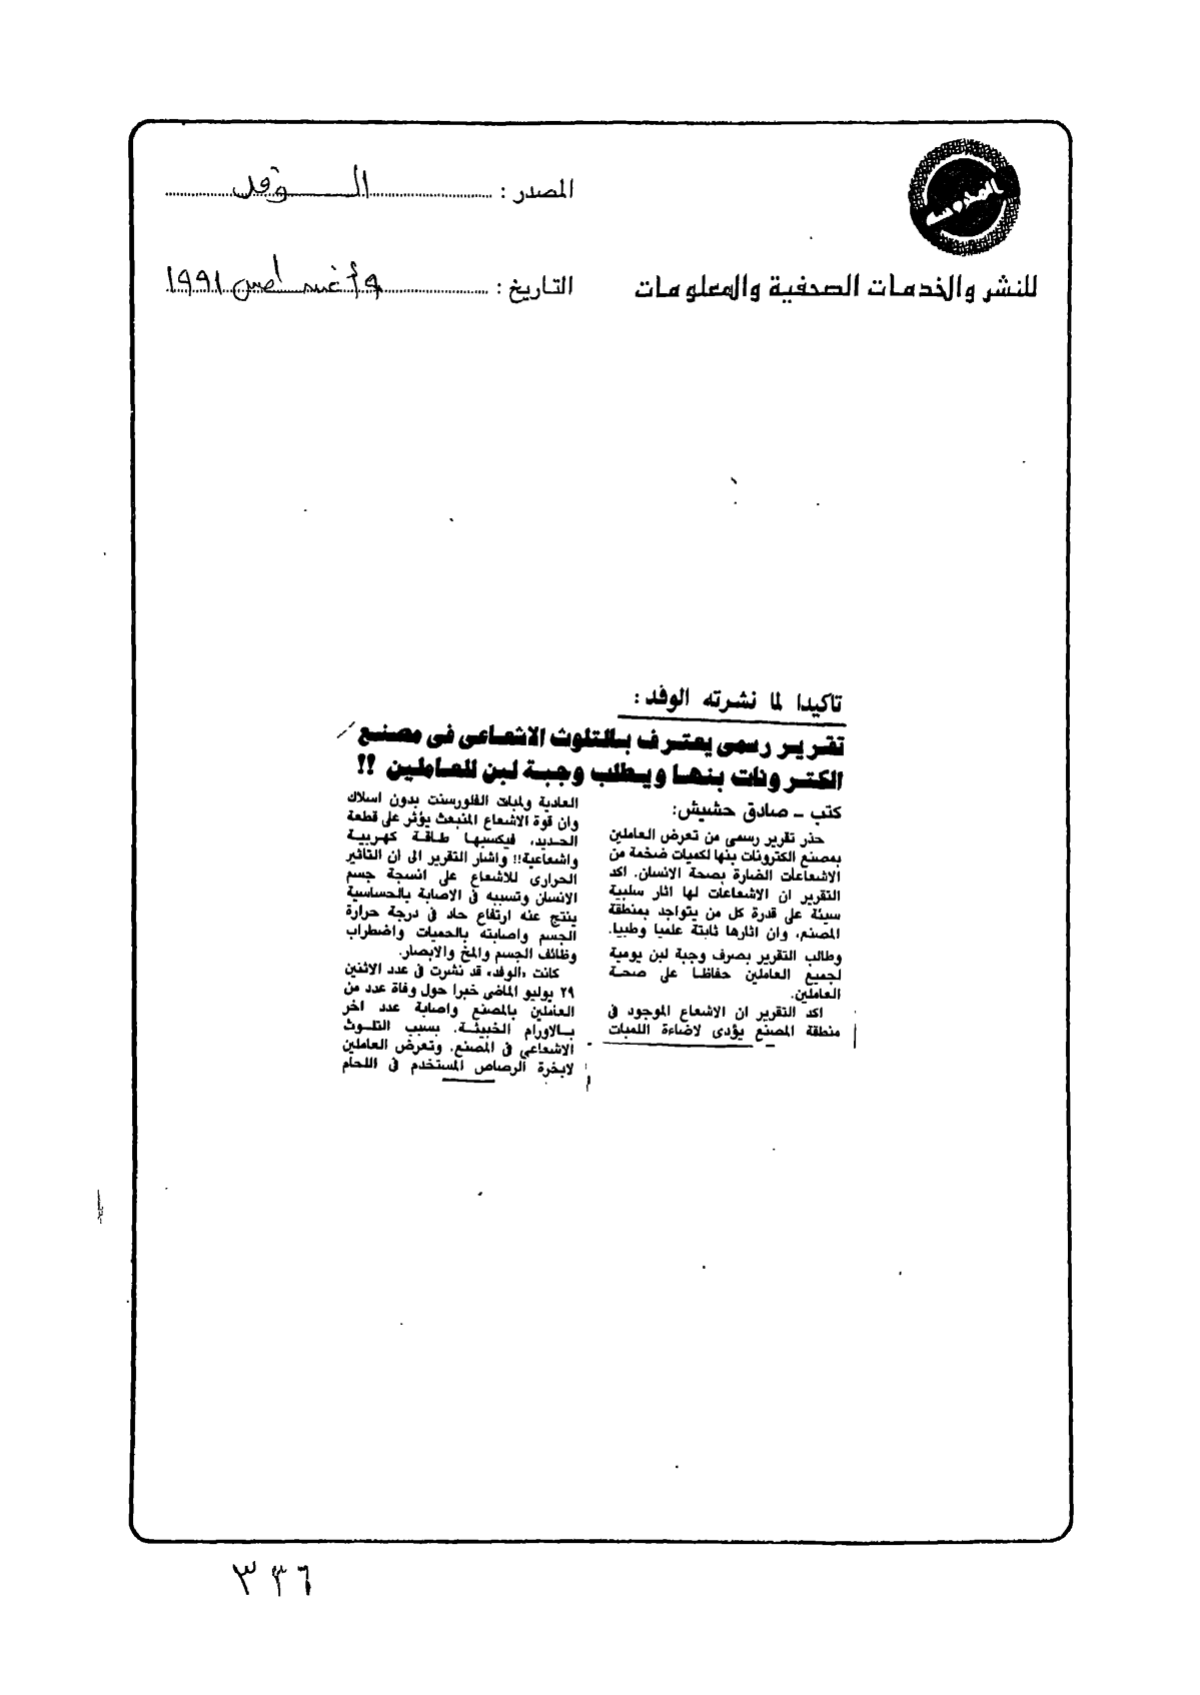 المصدر : الوفد
التاريخ : ٩ أغسطس ١٩٩١
للنشر والخدمات الصحفية والمعلومات
تاكيدا لما نشرته الوفد :
تقرير رسمى يعترف بالتلوث الاشعاعى فى مصنع
الكترونات بنها ويطلب وجبة لبن للعاملين !!
كتب ـ صادق حشيش:
حذر تقرير رسمى من تعرض العاملين
بمصنع الكترونات بنها لكميات ضخمة من
الاشعاعات الضارة بصحة الانسان. اكد
التقرير ان الاشعاعات لها اثار سلبية
سيئة على قدرة كل من يتواجد بمنطقة
المصنع، وان اثارها ثابتة علميا وطبيا.
وطالب التقرير بصرف وجبة لبن يومية
لجميع العاملين حفاظا على صحة
العاملين.
اكد التقرير ان الاشعاع الموجود فى
منطقة المصنع يؤدى لاضاءة اللمبات
العادية ولمبات الفلورسنت بدون اسلاك
وان قوة الاشعاع المنبعث يؤثر على قطعة
الحديد، فيكسبها طاقة كهربية
واشعاعية!! واشار التقرير الى ان التأثير
الحرارى للاشعاع على انسجة جسم
الانسان وتسببه فى الاصابة بالحساسية
ينتج عنه ارتفاع حاد فى درجة حرارة
الجسم واصابته بالحميات واضطراب
وظائف الجسم والمخ والابصار.
كانت «الوفد» قد نشرت فى عدد الاثنين
٢٩ يوليو الماضى خبرا حول وفاة عدد من
العاملين بالمصنع واصابة عدد اخر
بالاورام الخبيثة. بسبب التلوث
الاشعاعى فى المصنع. وتعرض العاملين
لابخرة الرصاص المستخدم فى اللحام
٣٣٦